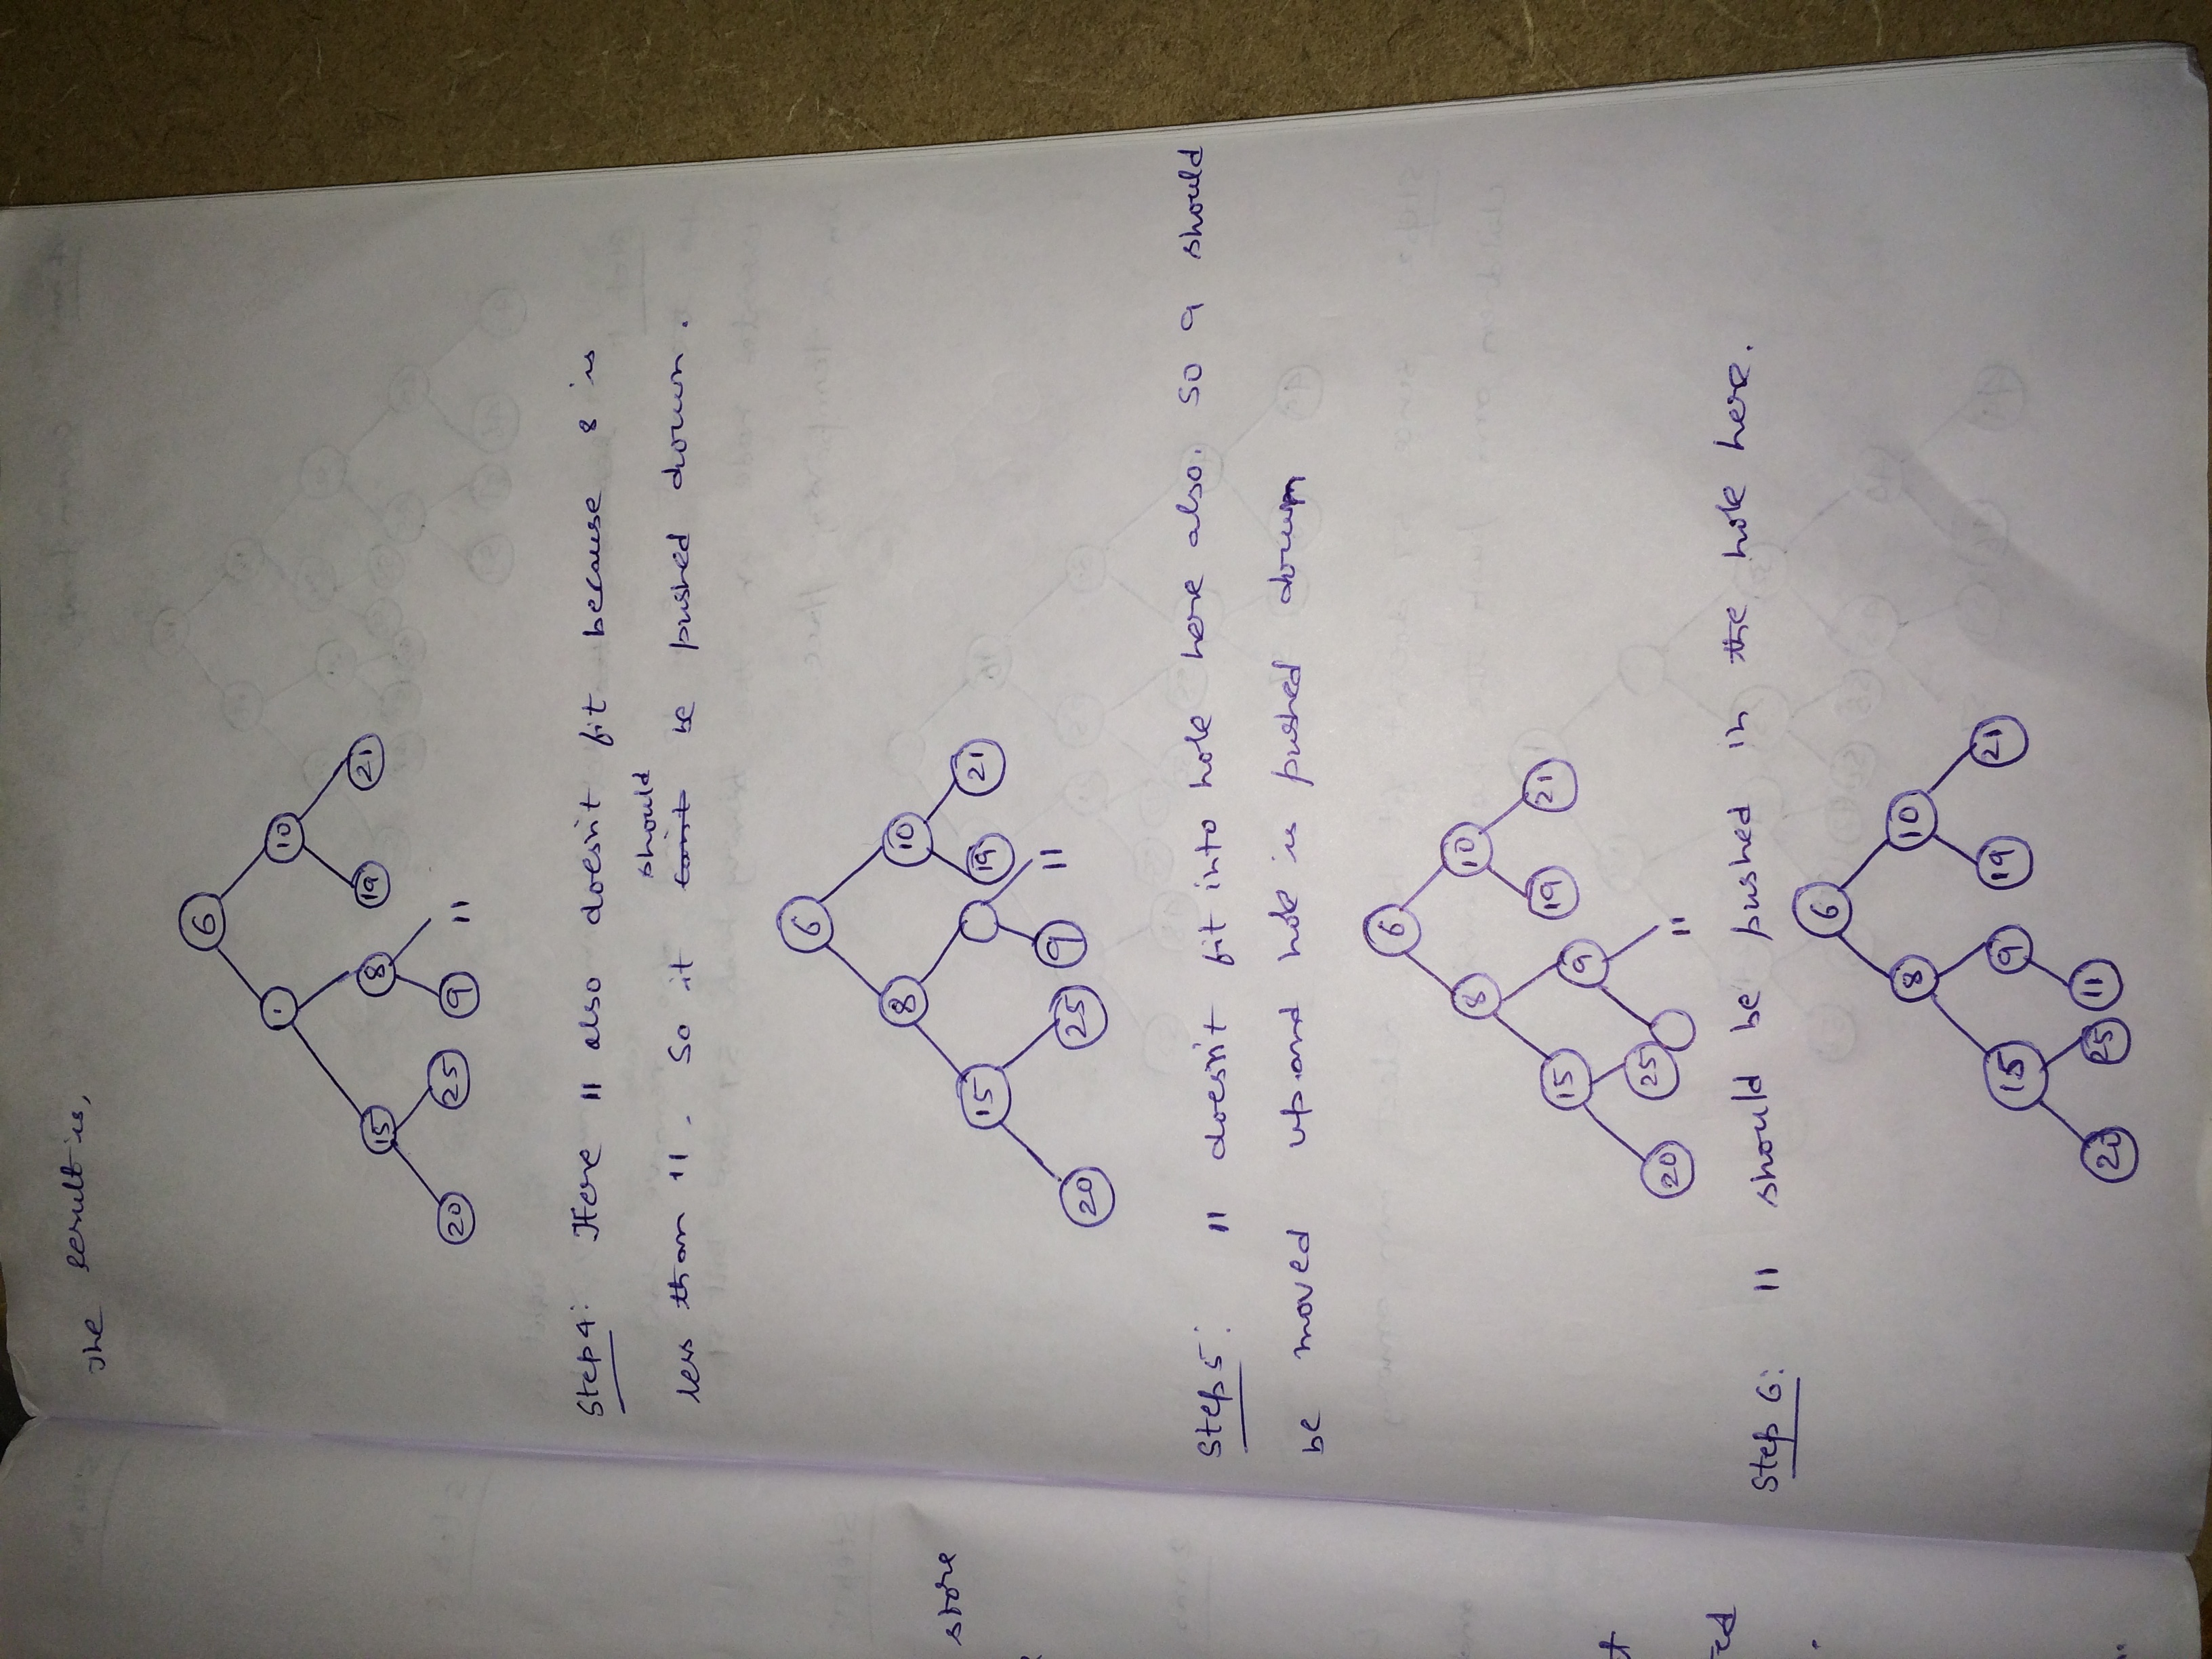 The result is,
6
1 10
15 8 19 21
20 25 9 11
Step 4: Here 11 also doesn't fit because 8 is
should
less than 11. So it can't be pushed down.
6
8 10
15 19 21
20 25 9 11
store
Step 5: 11 doesn't fit into hole here also. So 9 should
be moved up and hole is pushed down
6
8 10
15 9 19 21
20 25 11
Step 6: 11 should be pushed in the hole here.
6
8 10
15 9 19 21
20 25 11